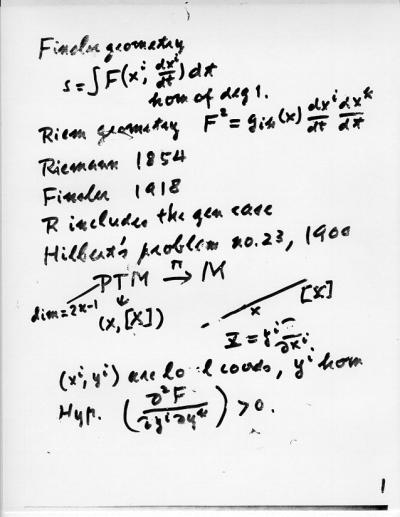 Finsler geometry
s = ∫ F(x^i; dx^i/dt) dt
hom of deg 1.
Riem geometry F² = g_ik(x) dx^i/dt dx^k/dt
Riemann 1854
Finsler 1918
R includes the gen case
Hilbert's problem no. 23, 1900
PTM →^π M
dim = 2n-1 ↓
(x, [X])
x [X]
X = y^i ∂/∂x^i
(x^i, y^i) are coords, y^i hom
Hyp. (∂²F / ∂y^i ∂y^k) > 0.
1